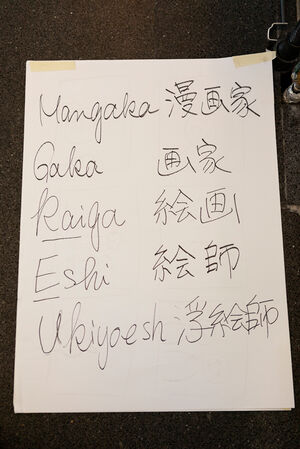 Mangaka 漫画家
Gaka 画家
Kaiga 絵画
Eshi 絵師
Ukiyoesh 浮絵師